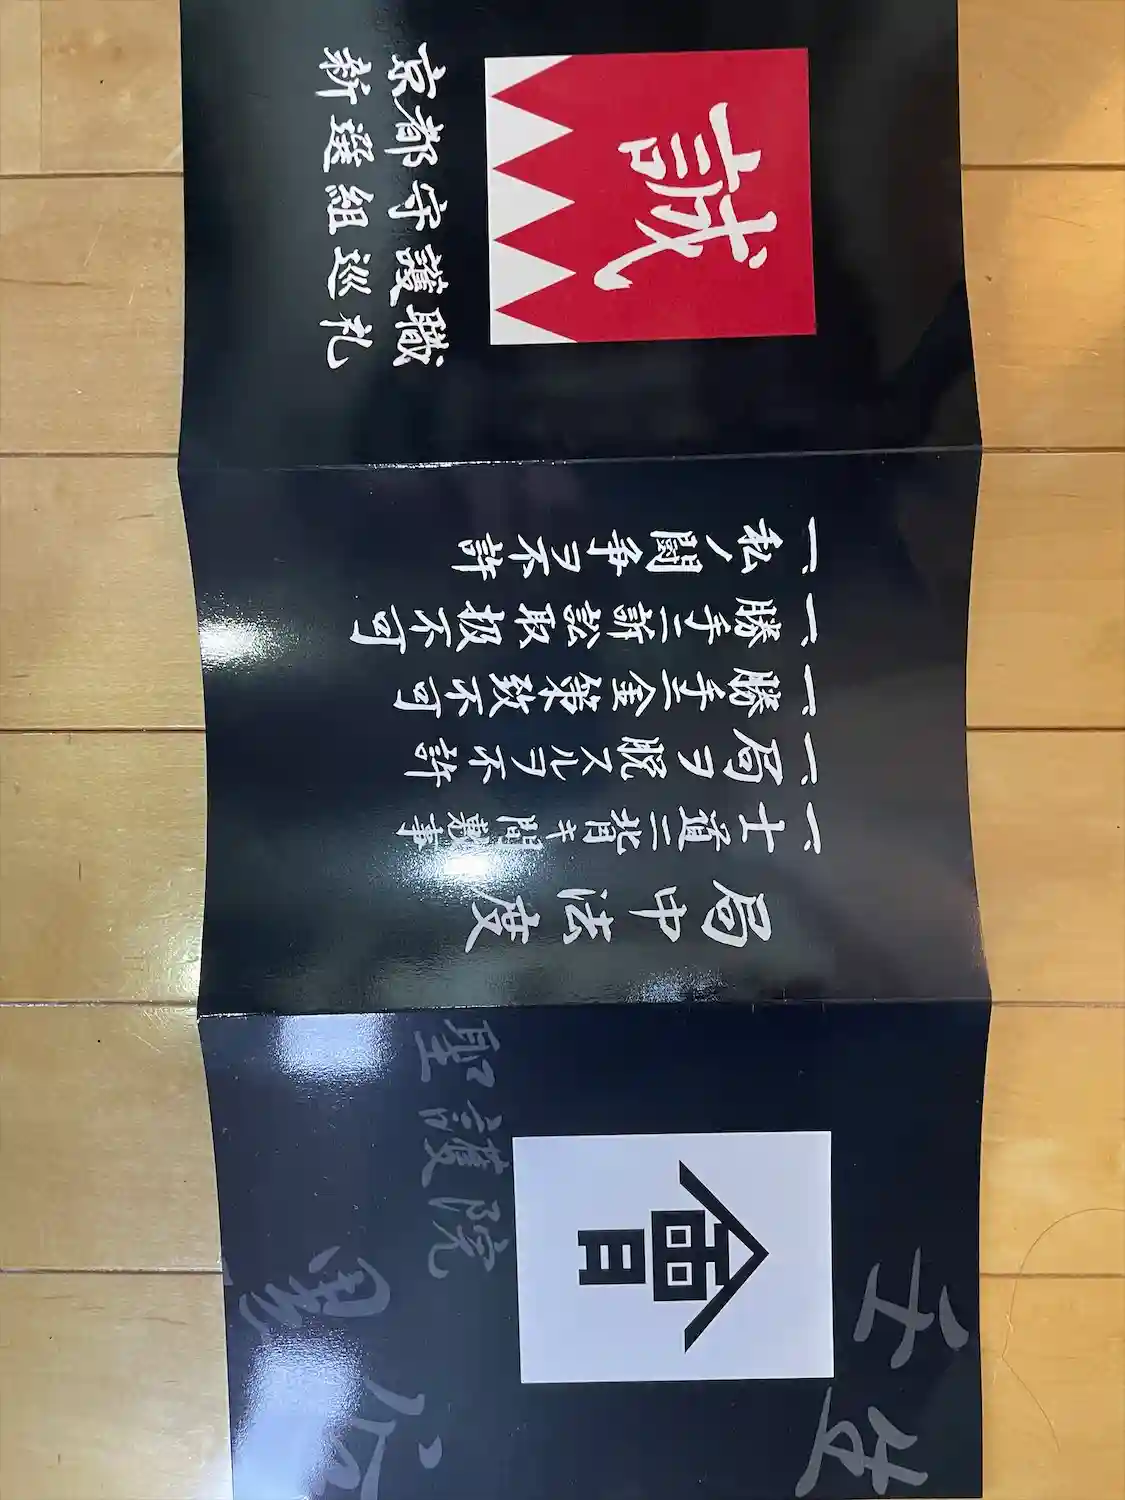 壬生
會
聖護院
黒谷
局中法度
一、士道ニ背キ間敷事
一、局ヲ脱スルヲ不許
一、勝手ニ金策致不可
一、勝手ニ訴訟取扱不可
一、私ノ闘争ヲ不許
誠
京都守護職
新選組巡礼